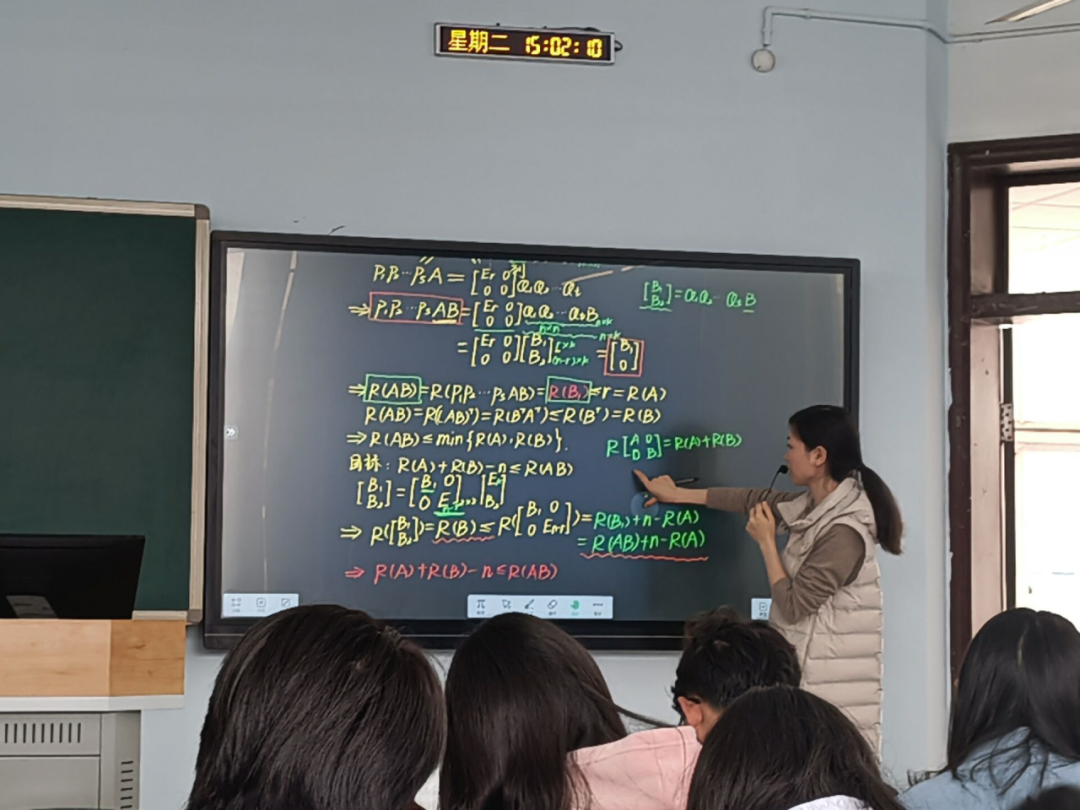 星期二 15:02:10
P₁P₂…PₛA = [Er 0; 0 0] Q₁Q₂…Qt
[B₁; B₂] = Q₁Q₂…QtB
⇒ P₁P₂…PₛAB = [Er 0; 0 0] Q₁Q₂…QtB
n×n n×k
= [Er 0; 0 0] [B₁; B₂] r×k (n-r)×k = [B₁; 0]
⇒ R(AB) = R(P₁P₂…PₛAB) = R(B₁) ≤ r = R(A)
R(AB) = R((AB)ᵀ) = R(BᵀAᵀ) ≤ R(Bᵀ) = R(B)
⇒ R(AB) ≤ min{R(A), R(B)}.
R[A 0; 0 B] = R(A)+R(B)
目标: R(A)+R(B)-n ≤ R(AB)
[B₁; B₂] = [B₁ 0; 0 E
⇒ R([B₁; B₂]) = R(B) ≤ R([B₁ 0; 0 En-r]) = R(B₁)+n-R(A)
= R(AB)+n-R(A)
⇒ R(A)+R(B)-n ≤ R(AB)